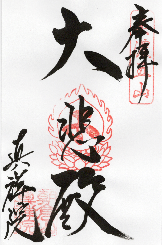 奉拝
大悲殿
真福院